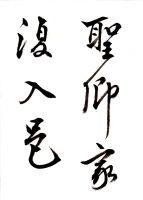 聖卿家
復入邑